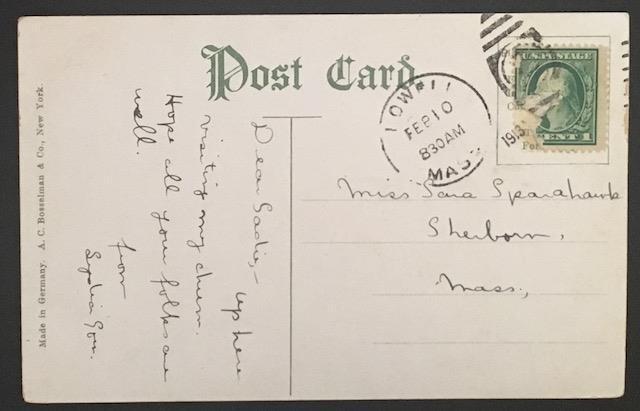 Post Card.
Made in Germany. A. C. Bosselman & Co., New York.
LOWELL
FEB 10
830AM
MASS
1913
U.S. POSTAGE
CENT 1
For
Dear Sadie,-
up here
visiting my chum.
Hope all your folks are
well.
from
Lydia
Miss Sara Sparahawk
Sherborn,
Mass.,